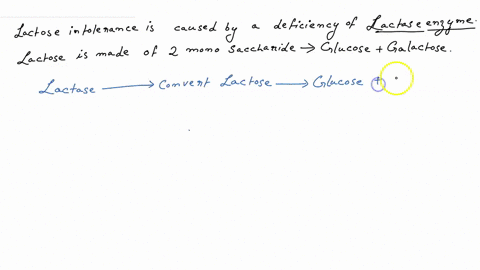 Lactose intolerance is caused by a deficiency of Lactase enzyme.
Lactose is made of 2 mono saccharide → Glucose + Galactose.
Lactase → Convert Lactose → Glucose +